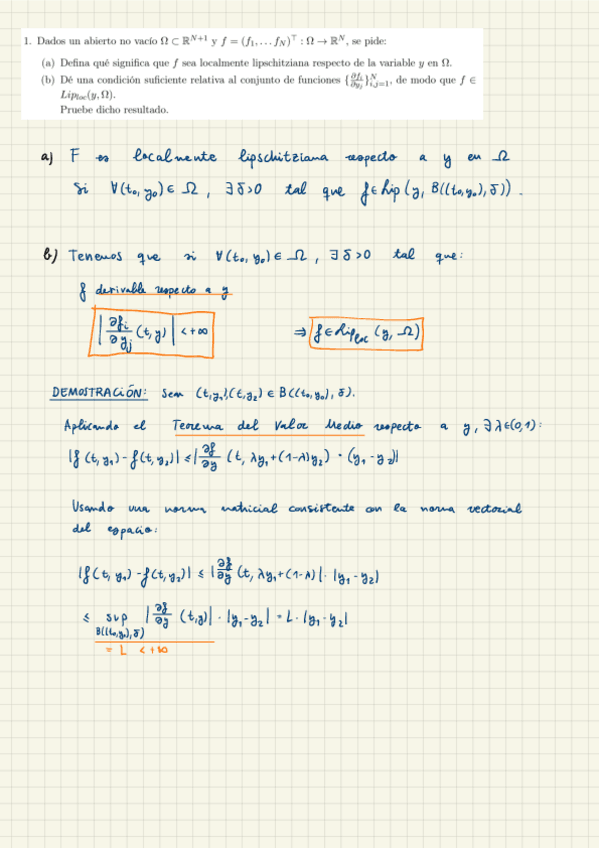 1. Dados un abierto no vacío Ω ⊂ ℝᴺ⁺¹ y f = (f₁, … f_N)^⊤ : Ω → ℝᴺ, se pide:
(a) Defina qué significa que f sea localmente lipschitziana respecto de la variable y en Ω.
(b) Dé una condición suficiente relativa al conjunto de funciones {∂fᵢ/∂yⱼ}ᴺᵢ,ⱼ₌₁, de modo que f ∈
Lip_loc(y, Ω).
Pruebe dicho resultado.
a) F es localmente lipschitziana respecto a y en Ω
Si ∀(t₀, y₀) ∈ Ω, ∃δ>0 tal que f ∈ Lip(y, B((t₀,y₀), δ)).
b) Tenemos que si ∀(t₀, y₀) ∈ Ω, ∃δ>0 tal que:
f derivable respecto a y
|∂fᵢ/∂yⱼ (t,y)| < +∞ ⇒ f ∈ Lip_loc (y, Ω)
DEMOSTRACIÓN: Sean (t,y₁),(t,y₂) ∈ B((t₀,y₀), δ).
Aplicando el Teorema del Valor Medio respecto a y, ∃λ∈(0,1):
|f(t,y₁) - f(t,y₂)| ≤ |∂f/∂y (t, λy₁+(1-λ)y₂) · (y₁-y₂)|
Usando una norma matricial consistente con la norma vectorial
del espacio:
|f(t,y₁) - f(t,y₂)| ≤ |∂f/∂y (t, λy₁+(1-λ)| · |y₁-y₂|
≤ sup |∂f/∂y (t,y)| · |y₁-y₂| = L · |y₁-y₂|
B((t₀,y₀),δ)
= L < +∞